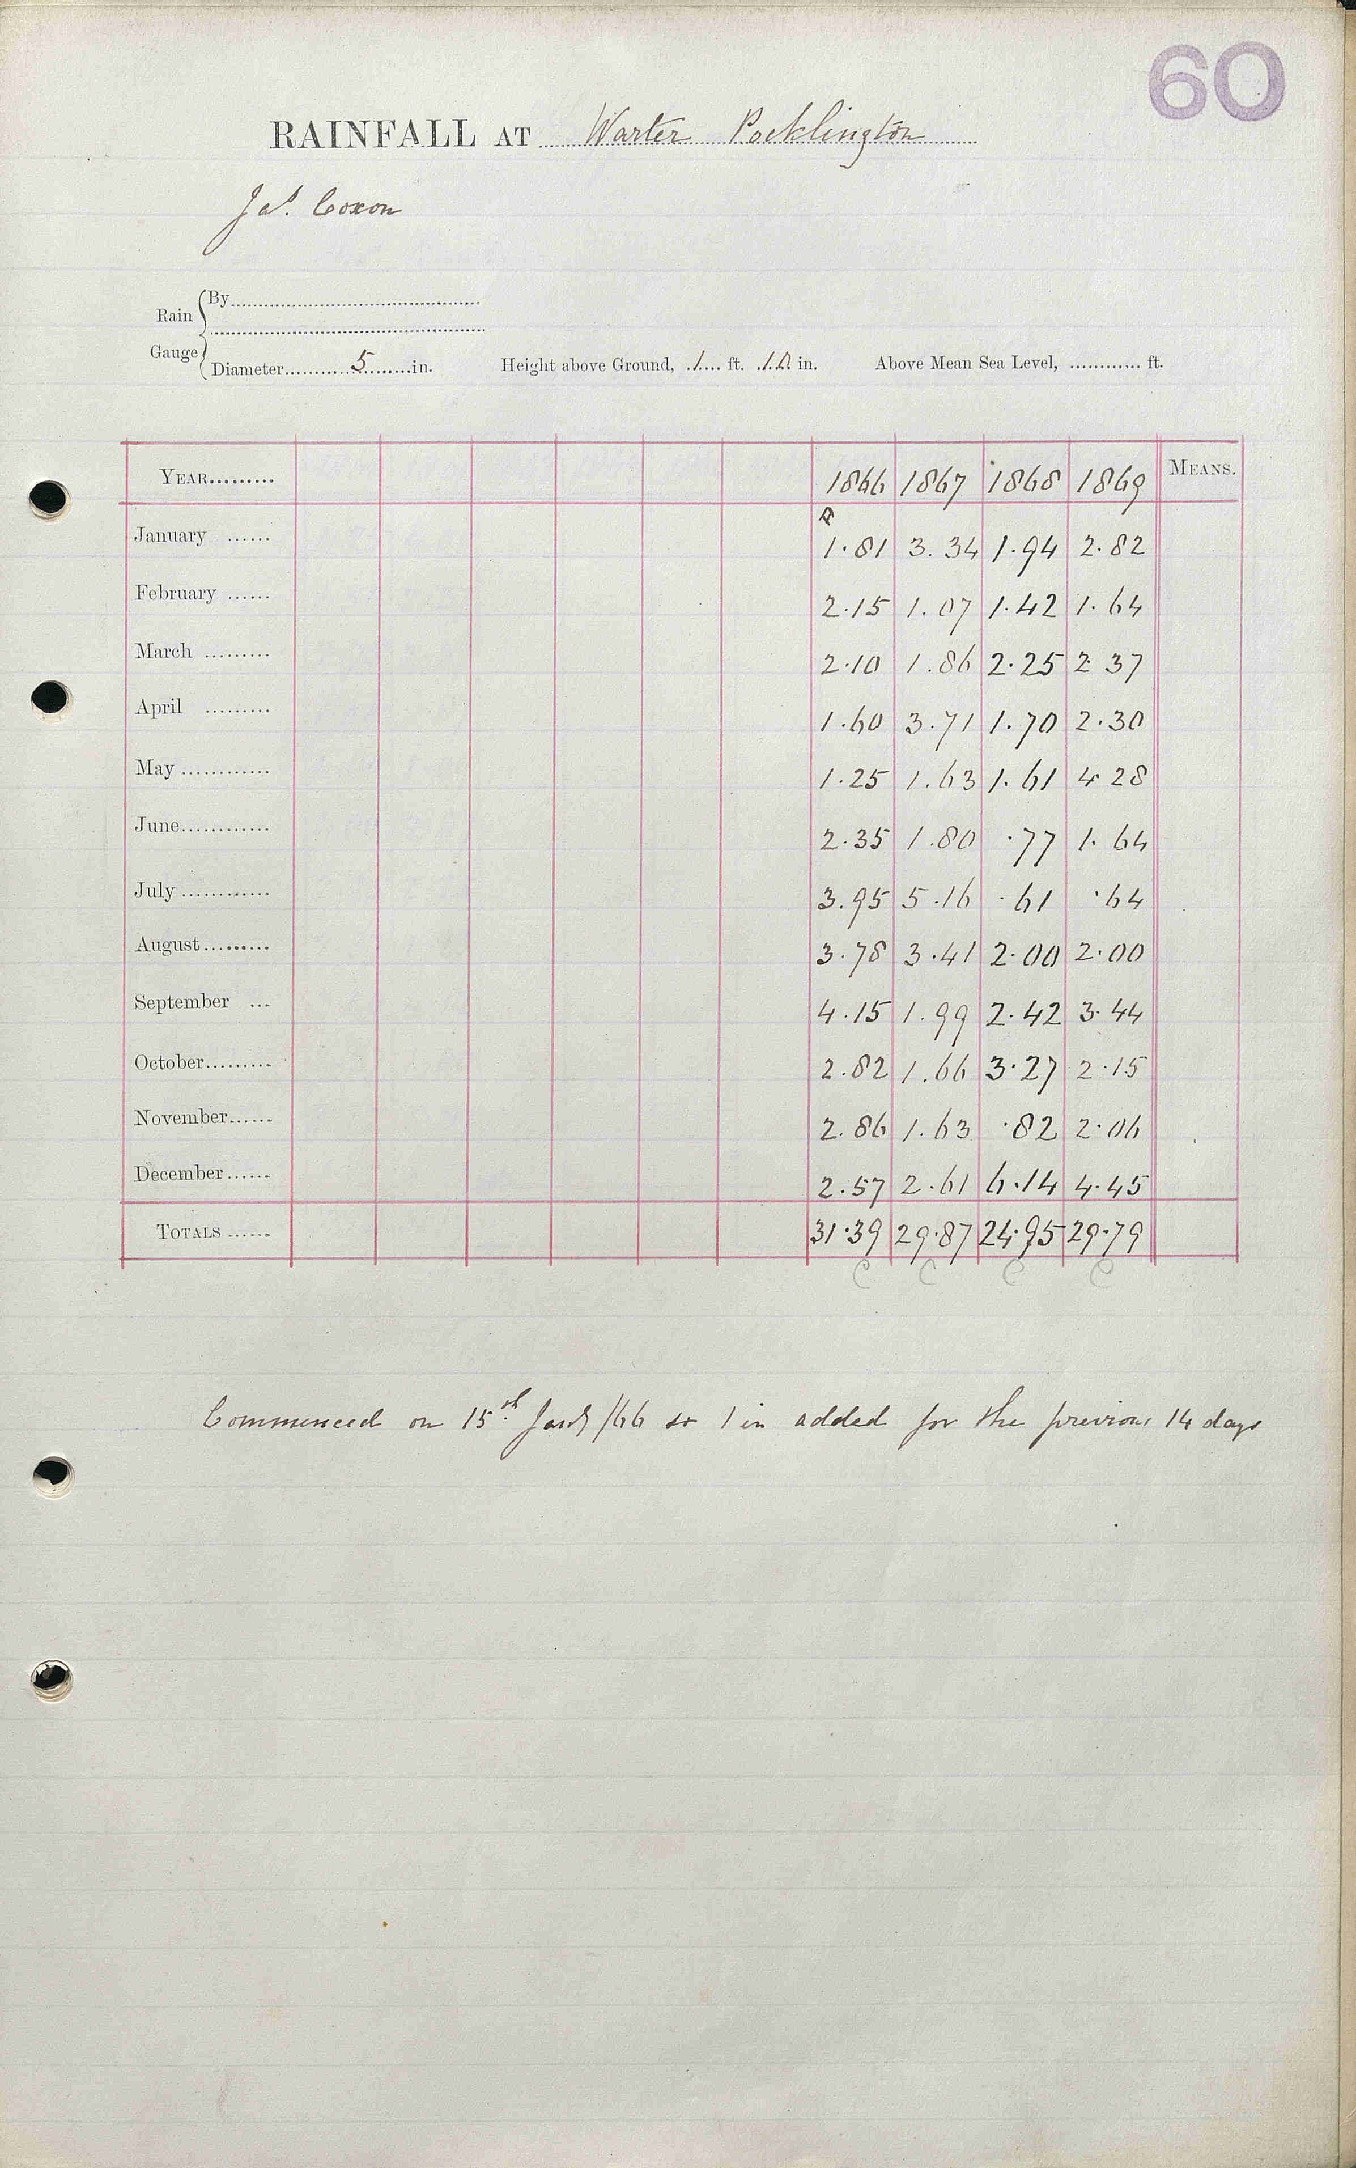 60
RAINFALL AT Warter Pocklington
Jas. Coxon
Rain Gauge
By
Diameter 5 in. Height above Ground, 1 ft. 10 in. Above Mean Sea Level, ft.
YEAR 1866 1867 1868 1869 MEANS.
January 1.81 3.34 1.94 2.82
February 2.15 1.07 1.42 1.64
March 2.10 1.86 2.25 2.37
April 1.60 3.71 1.70 2.30
May 1.25 1.63 1.61 4.28
June 2.35 1.80 .77 1.64
July 3.95 5.16 .61 .64
August 3.78 3.41 2.00 2.00
September 4.15 1.99 2.42 3.44
October 2.82 1.66 3.27 2.15
November 2.86 1.63 .82 2.06
December 2.57 2.61 6.14 4.45
TOTALS 31.39 29.87 24.95 29.79
C C C C
Commenced on 15th Jany /66 so 1 in added for the previous 14 days